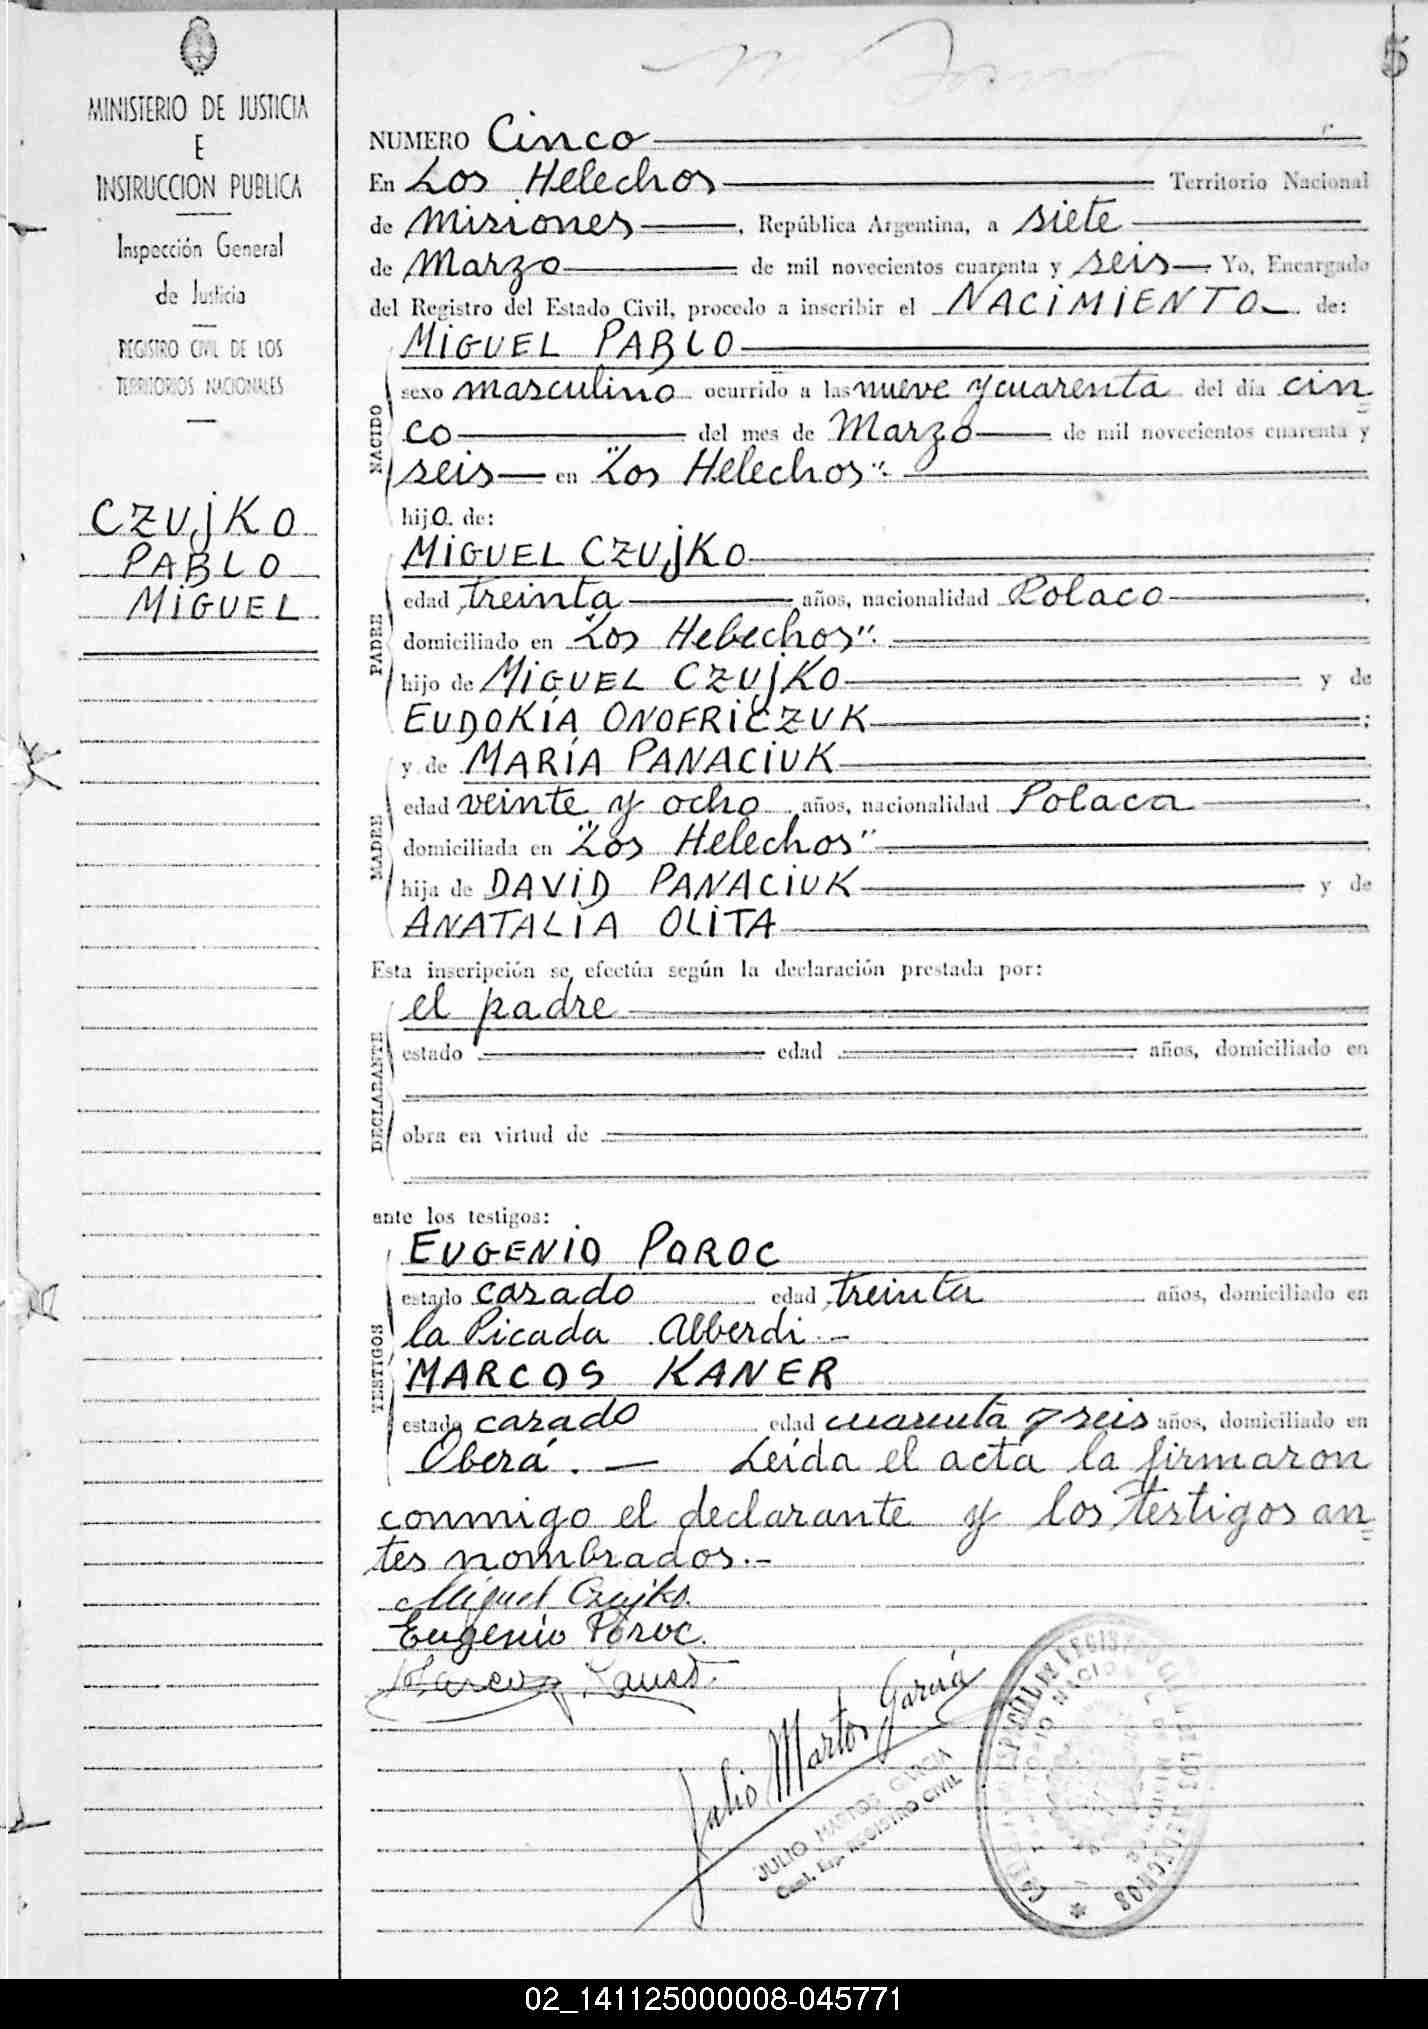 5
MINISTERIO DE JUSTICIA
E
INSTRUCCION PUBLICA
Inspección General
de Justicia
REGISTRO CIVIL DE LOS
TERRITORIOS NACIONALES
CZUJKO
PABLO
MIGUEL
NUMERO Cinco
En Los Helechos Territorio Nacional
de Misiones, República Argentina, a siete
de Marzo de mil novecientos cuarenta y seis Yo, Encargado
del Registro del Estado Civil, procedo a inscribir el NACIMIENTO de:
NACIDO
MIGUEL PABLO
sexo masculino ocurrido a las nueve y cuarenta del día cin=
co del mes de Marzo de mil novecientos cuarenta y
seis en "Los Helechos".
hijo de:
PADRE
MIGUEL CZUJKO
edad treinta años, nacionalidad Polaco.
domiciliado en "Los Helechos".
hijo de MIGUEL CZUJKO y de
EUDOKÍA ONOFRICZUK;
y de MARÍA PANACIUK
MADRE
edad veinte y ocho años, nacionalidad Polaca.
domiciliada en "Los Helechos"
hija de DAVID PANACIUK y de
ANATALIA OLITA
Esta inscripción se efectúa según la declaración prestada por:
DECLARANTE
el padre
estado edad años, domiciliado en
obra en virtud de
ante los testigos:
TESTIGOS
EUGENIO POROC
estado casado edad treinta años, domiciliado en
la Picada Alberdi.-
MARCOS KANER
estado casado edad cuarenta y seis años, domiciliado en
Oberá. — Leída el acta la firmaron
conmigo el declarante y los testigos an=
tes nombrados.-
Miguel Czujko.
Eugenio Poroc.
Marcos
Julio Martos García
JULIO MARTOS GARCIA
REGISTRO CIVIL
02_141125000008-045771